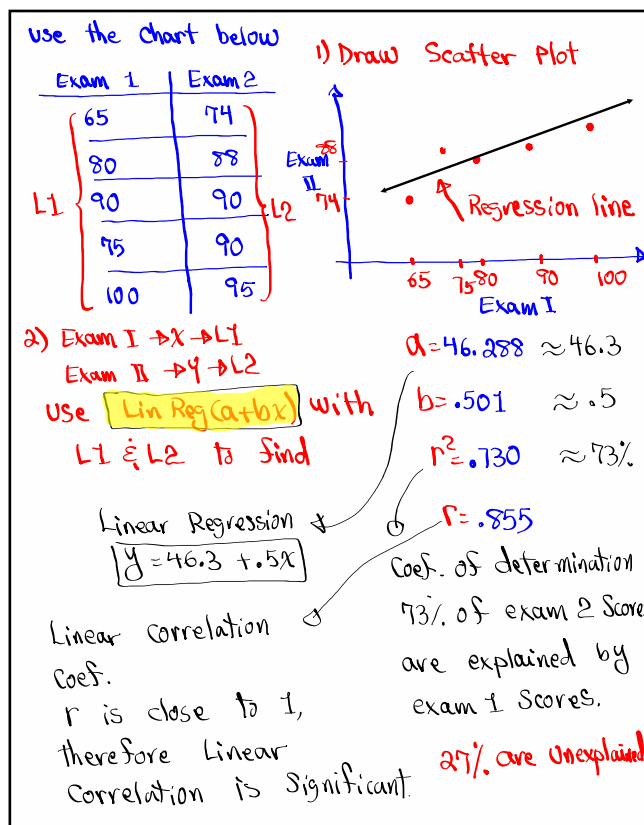 use the Chart below
Exam 1 Exam 2
65 74
80 88
90 90
75 90
100 95
L1
L2
1) Draw Scatter Plot
88
Exam
II
74
Regression line
65 75 80 90 100
Exam I
2) Exam I → X → L1
Exam II → Y → L2
use Lin Reg(a+bx) with
L1 & L2 to find
a=46.288 ≈46.3
b=.501 ≈.5
r²=.730 ≈73%
r=.855
Linear Regression
y=46.3 +.5x
Linear Correlation
Coef.
r is close to 1,
therefore Linear
Correlation is Significant.
Coef. of determination
73% of exam 2 Score
are explained by
exam 1 Scores.
27% are Unexplained